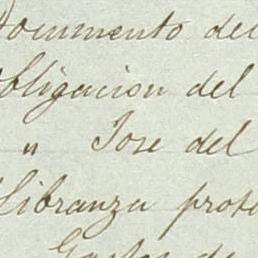 Documento del
Obligacion del
" Jose del
Libranza prote
Gastos de